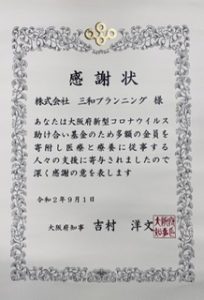 感謝状
株式会社 三和プランニング 様
あなたは大阪府新型コロナウイルス
助け合い基金のため多額の金員を
寄附し医療と療養に従事する
人々の支援に寄与されましたので
深く感謝の意を表します
令和2年9月1日
大阪府知事 吉村 洋文